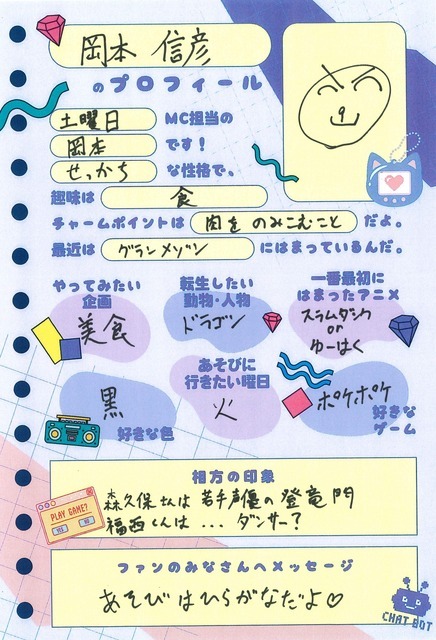 岡本 信彦
のプロフィール
土曜日 MC担当の
岡本 です！
せっかち な性格で、
趣味は 食
チャームポイントは 肉をのみこむこと だよ。
最近は グランメゾン にはまっているんだ。
やってみたい
企画
美食
転生したい
動物・人物
ドラゴン
一番最初に
はまったアニメ
スラムダンク
or
ゆーはく
黒
好きな色
あそびに
行きたい曜日
火
ポケポケ
好きな
ゲーム
相方の印象
PLAY GAME?
YES NO
森久保さんは 若手声優の登竜門
福西くんは ... ダンサー？
ファンのみなさんへメッセージ
あそびはひらがなだよ♡
CHAT BOT